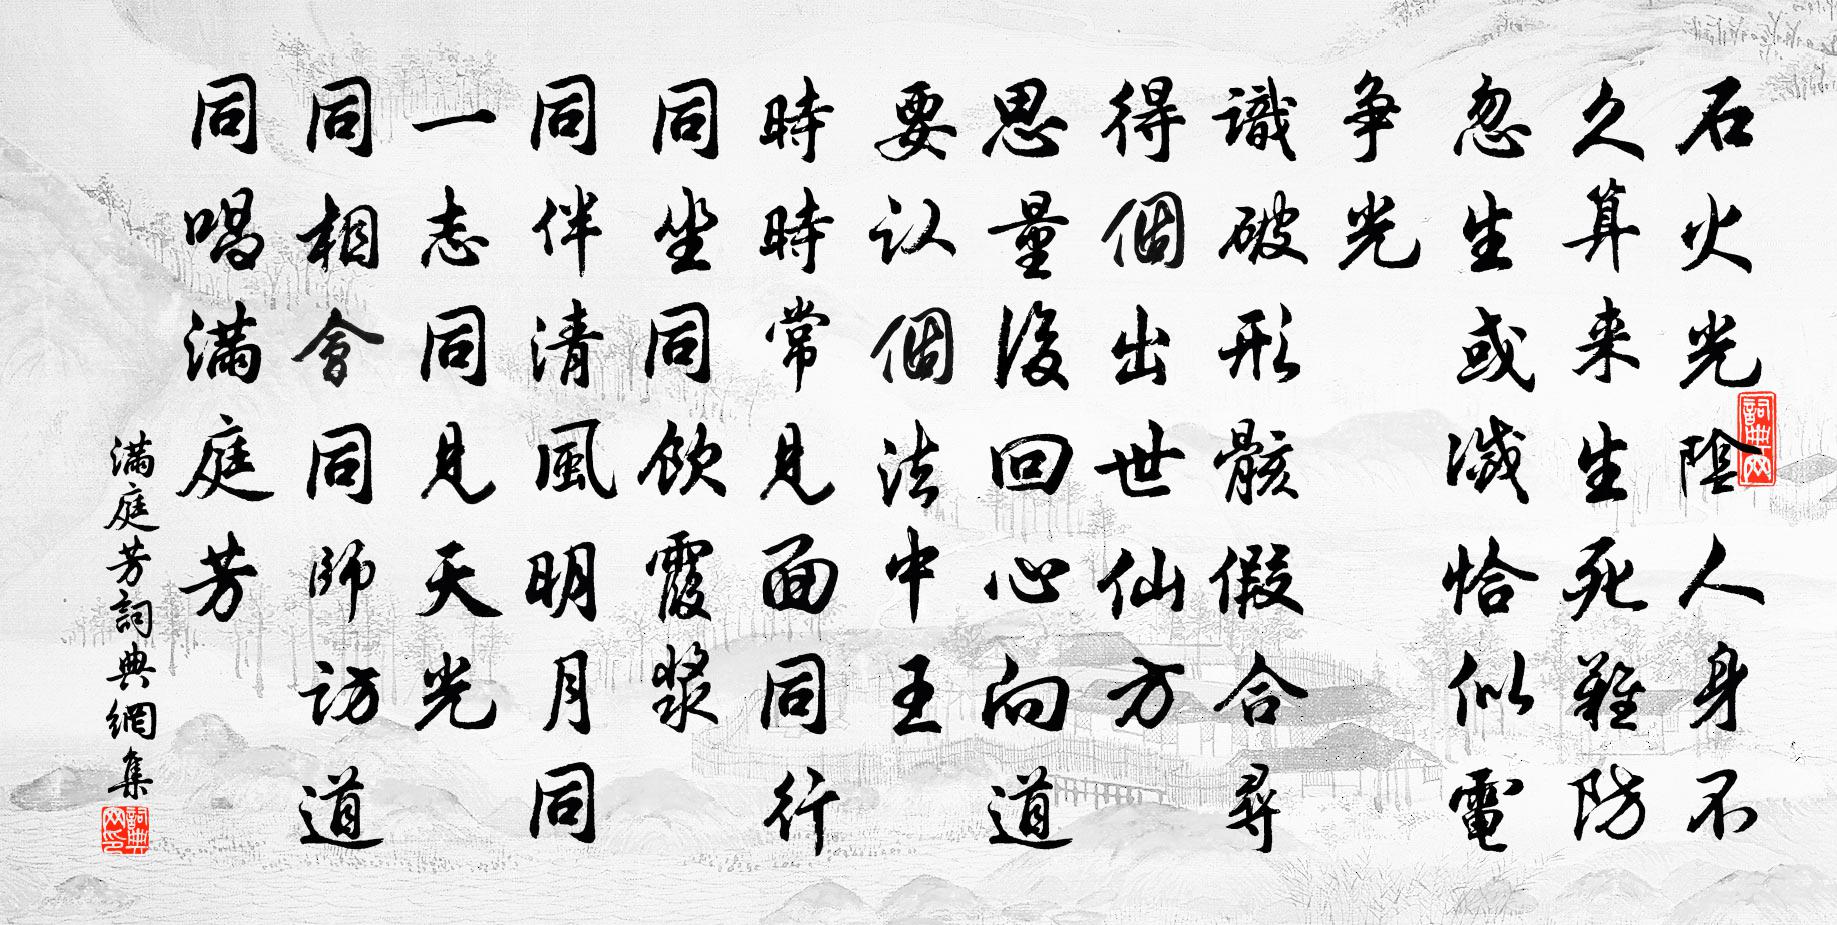 石火光陰人身不
久算来生死難防
忽生或滅恰似電
争光
識破形骸假合尋
得個出世仙方
思量後回心向道
要认個法中王
時時常見面同行
同坐同飲霞漿
同伴清風明月同
一志同見天光
同相會同師访道
同唱满庭芳
满庭芳詞典網集
詞典网
詞典网印